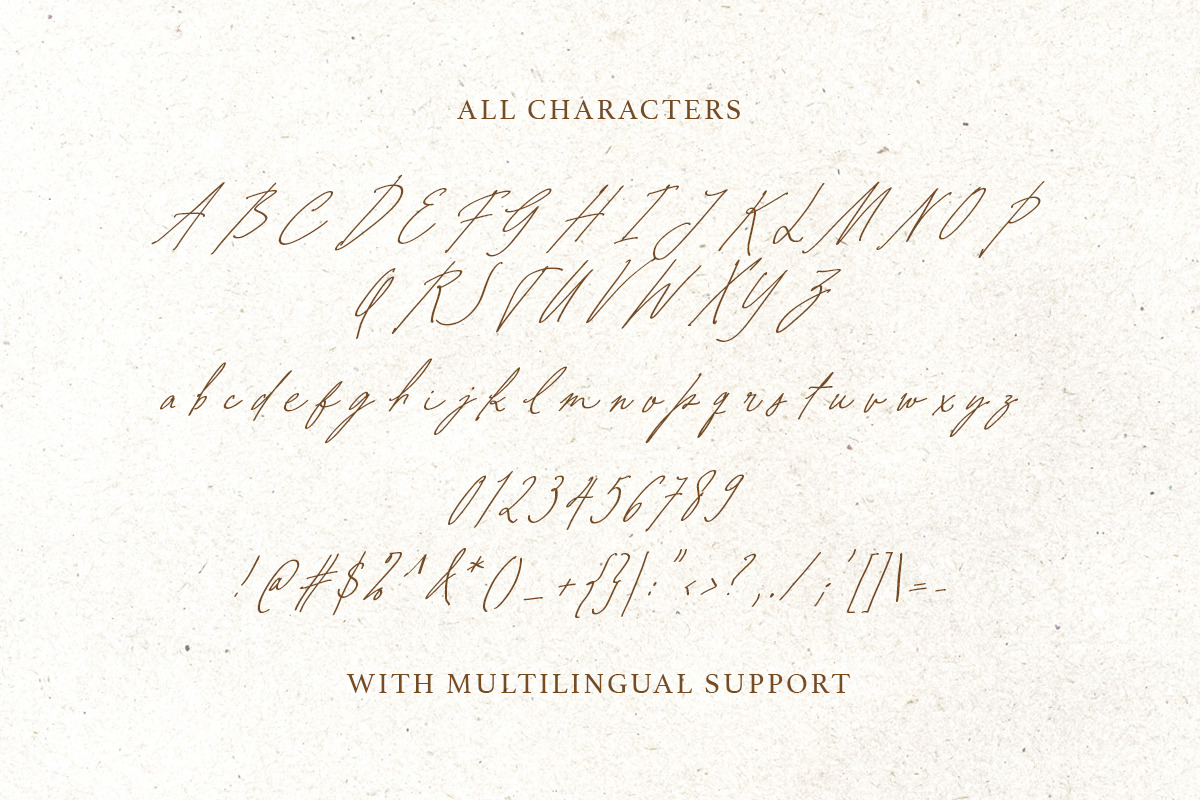 ALL CHARACTERS
A B C D E F G H I J K L M N O P
Q R S T U V W X Y Z
a b c d e f g h i j k l m n o p q r s t u v w x y z
0 1 2 3 4 5 6 7 8 9
! @ # $ % ^ & * ( ) _ + { } | : " < > ? , . / ; ' [ ] \ = -
WITH MULTILINGUAL SUPPORT